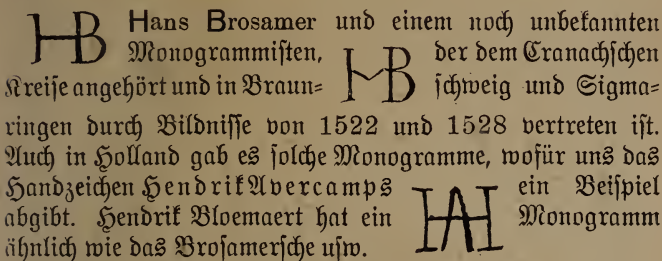 HB Hans Brosamer und einem noch unbekannten
Monogrammisten, HB der dem Cranachschen
Kreise angehört und in Braun= schweig und Sigma=
ringen durch Bildnisse von 1522 und 1528 vertreten ist.
Auch in Holland gab es solche Monogramme, wofür uns das
Handzeichen Hendrik Avercamps HA ein Beispiel
abgibt. Hendrik Bloemaert hat ein Monogramm
ähnlich wie das Brosamersche usw.